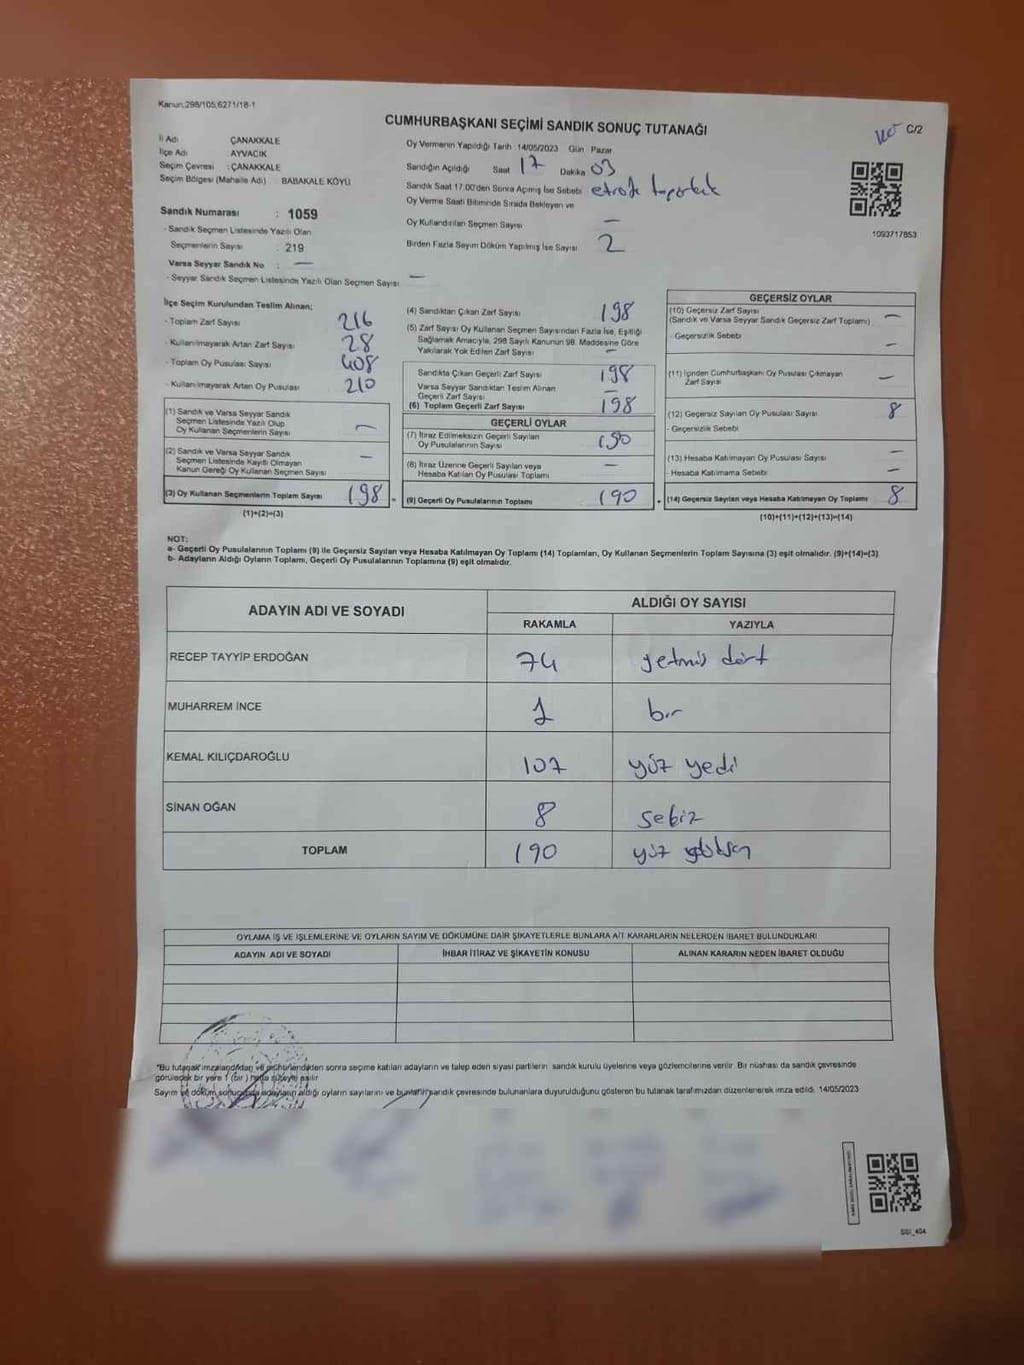 Kanun:298/105,6271/18-1
CUMHURBAŞKANI SEÇİMİ SANDIK SONUÇ TUTANAĞI
C/2
İl Adı : ÇANAKKALE
İlçe Adı : AYVACIK
Seçim Çevresi : ÇANAKKALE
Seçim Bölgesi (Mahalle Adı) : BABAKALE KÖYÜ
Sandık Numarası : 1059
- Sandık Seçmen Listesinde Yazılı Olan
Seçmenlerin Sayısı : 219
Varsa Seyyar Sandık No : —
- Seyyar Sandık Seçmen Listesinde Yazılı Olan Seçmen Sayısı : —
Oy Vermenin Yapıldığı Tarih : 14/05/2023 Gün : Pazar
Sandığın Açıldığı Saat 17 Dakika 03
Sandık Saat 17.00'den Sonra Açılmış İse Sebebi
Oy Verme Saati Bitiminde Sırada Bekleyen ve
Oy Kullandırılan Seçmen Sayısı —
Birden Fazla Sayım Döküm Yapılmış İse Sayısı 2
1093717853
İlçe Seçim Kurulundan Teslim Alınan;
- Toplam Zarf Sayısı 216
- Kullanılmayarak Artan Zarf Sayısı 28
- Toplam Oy Pusulası Sayısı 408
- Kullanılmayarak Artan Oy Pusulası 210
(1) Sandık ve Varsa Seyyar Sandık
Seçmen Listesinde Yazılı Olup
Oy Kullanan Seçmenlerin Sayısı —
(2) Sandık ve Varsa Seyyar Sandık
Seçmen Listesinde Kayıtlı Olmayan
Kanun Gereği Oy Kullanan Seçmen Sayısı —
(3) Oy Kullanan Seçmenlerin Toplam Sayısı 198
(1)+(2)=(3)
(4) Sandıktan Çıkan Zarf Sayısı 198
(5) Zarf Sayısı Oy Kullanan Seçmen Sayısından Fazla İse, Eşitliği
Sağlamak Amacıyla, 298 Sayılı Kanunun 98. Maddesine Göre
Yakılarak Yok Edilen Zarf Sayısı —
Sandıkta Çıkan Geçerli Zarf Sayısı 198
Varsa Seyyar Sandıktan Teslim Alınan
Geçerli Zarf Sayısı —
(6) Toplam Geçerli Zarf Sayısı 198
GEÇERLİ OYLAR
(7) İtiraz Edilmeksizin Geçerli Sayılan
Oy Pusulalarının Sayısı 190
(8) İtiraz Üzerine Geçerli Sayılan veya
Hesaba Katılan Oy Pusulası Toplamı —
(9) Geçerli Oy Pusulalarının Toplamı 190
GEÇERSİZ OYLAR
(10) Geçersiz Zarf Sayısı
(Sandık ve Varsa Seyyar Sandık Geçersiz Zarf Toplamı) —
- Geçersizlik Sebebi —
(11) İçinden Cumhurbaşkanı Oy Pusulası Çıkmayan
Zarf Sayısı —
(12) Geçersiz Sayılan Oy Pusulası Sayısı 8
- Geçersizlik Sebebi
(13) Hesaba Katılmayan Oy Pusulası Sayısı —
- Hesaba Katılmama Sebebi —
(14) Geçersiz Sayılan veya Hesaba Katılmayan Oy Toplamı 8
(10)+(11)+(12)+(13)=(14)
NOT:
a- Geçerli Oy Pusulalarının Toplamı (9) ile Geçersiz Sayılan veya Hesaba Katılmayan Oy Toplamı (14) Toplamları, Oy Kullanan Seçmenlerin Toplam Sayısına (3) eşit olmalıdır. (9)+(14)=(3)
b- Adayların Aldığı Oyların Toplamı, Geçerli Oy Pusulalarının Toplamına (9) eşit olmalıdır.
ADAYIN ADI VE SOYADI ALDIĞI OY SAYISI
RAKAMLA YAZIYLA
RECEP TAYYİP ERDOĞAN 74 yetmiş dört
MUHARREM İNCE 1 bir
KEMAL KILIÇDAROĞLU 107 yüz yedi
SİNAN OĞAN 8 sekiz
TOPLAM 190 yüz
OYLAMA İŞ VE İŞLEMLERİNE VE OYLARIN SAYIM VE DÖKÜMÜNE DAİR ŞİKAYETLERLE BUNLARA AİT KARARLARIN NELERDEN İBARET BULUNDUKLARI
ADAYIN ADI VE SOYADI İHBAR İTİRAZ VE ŞİKAYETİN KONUSU ALINAN KARARIN NEDEN İBARET OLDUĞU
*Bu tutanak imzalandıktan ve mühürlendikten sonra seçime katılan adayların ve talep eden siyasi partilerin sandık kurulu üyelerine veya gözlemcilerine verilir. Bir nüshası da sandık çevresinde
görülecek bir yere 1 (bir) hafta süreyle asılır
Sayım ve döküm sonucunda adayların aldığı oyların sayılarını ve bunların sandık çevresinde bulunanlara duyurulduğunu gösteren bu tutanak tarafımızdan düzenlenerek imza edildi. 14/05/2023